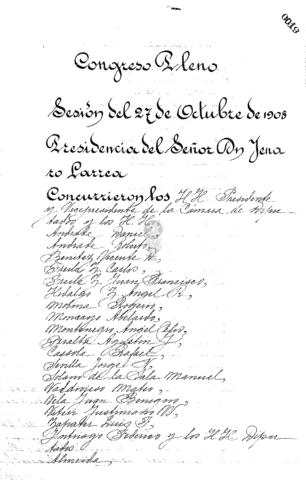 0019
Congreso Pleno
Sesión del 27 de Octubre de 1908
Presidencia del Señor Dn Jena
ro Larrea
Concurrieron los H H Presidente
y Vicepresidente de la Cámara de Dipu
tados y los H H
Andrade Daniel
Andrade
Benítez Vicente
Carlos,
Juan Francisco,
Hidalgo Angel R,
Molina
Moncayo Abelardo,
Montenegro Angel
Peralta Agustín J,
Rafael,
Sevilla Jorge
de la Manuel,
Mateo,
Vela Juan Benigno,
Justiniano
Zapater Luis F,
Intriago Federico y los H H Dipu
tados
Almeida,